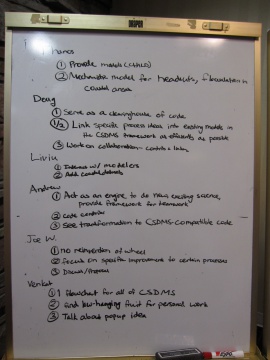 DRAPER
① Provide models (CHILD)
② Mechanistic model for headcuts, floodation in
coastal area
Doug
① Serve as a clearinghouse of code
①/② Link specific process ideas into existing models in
the CSDMS framework as efficiently as possible
③ Work on collaboration -
Liviu
① Interact w/ modelers
② Add
Andrew
① Act as an engine to do new exciting science,
provide framework for teamwork
② code
③ See transformation to CSDMS-compatible code
Joe W.
① no reinvention of wheel
② focus on specific improvement to certain processes
③ Discuss/Propose
Venkat
① 1 flowchart for all of CSDMS
② find low-hanging fruit for personal work
③ Talk about popup idea